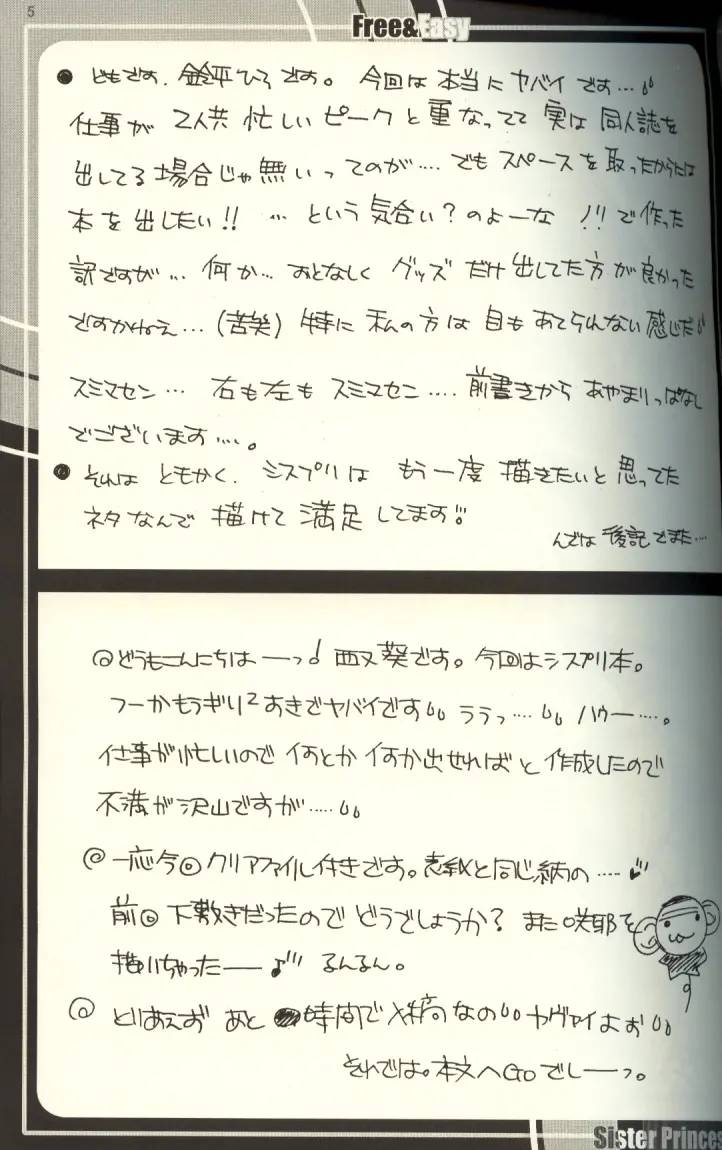 5
Free&Easy
● ども です. 金平ひろ です。 今回は 本当に ヤバイ です…
仕事が 2人共 忙しい ピークと 重なってて 実は 同人誌を
出してる 場合じゃ 無い ってのが…. でも スペースを 取ったからには
本を 出したい!! … という 気合い? のよーな ノリ で 作った
訳ですが… 何か… おとなしく グッズ だけ 出してた方が 良かった
ですかねえ… (苦笑) 特に 私の方は 目も あてらんない 感じだ
スミマセン… 右も左も スミマセン…. 前書きから あやまりっぱなし
でございます….。
● それは ともかく. シスプリは もう一度 描きたいと 思ってた
ネタ なんで 描けて 満足 してます!!
んでは 後記でまた…
@どうもこんにちは ーっ♪ 葵です。今回はシスプリ本。
つーかもうギリ2 すぎでヤバイです ううっ…. ハウー….。
仕事が忙しいので 何とか 何か出せればと 作成したので
不満が沢山ですが…..
@ 一応今回クリアファイル付きです。表紙と同じ柄の….
前回 下敷きだったので どうでしょうか? また 咲耶を
描いちゃったー♪ るんるん。
@ とりあえず あと 時間で入稿なの ヤヴァイよぉ
それでは。本文へGoでしーっ。
Sister Princes